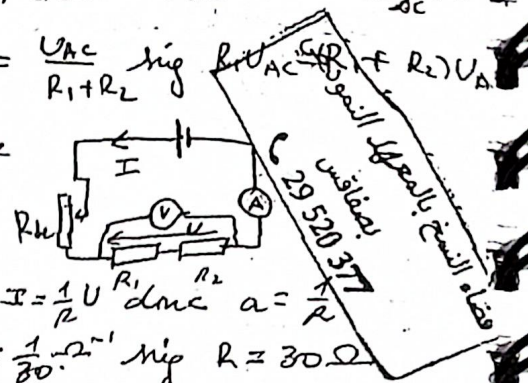 AC
= U_AC / R₁+R₂ sig R₁U_AC (R₁+ R₂)U_A
I
A
V
U
R₁ R₂
I = 1/R U donc a = 1/R
1/30 Ω⁻¹ sig R = 30 Ω
فضاء النسخ بالمعهد النموذجي
بصفاقس
29 520 377